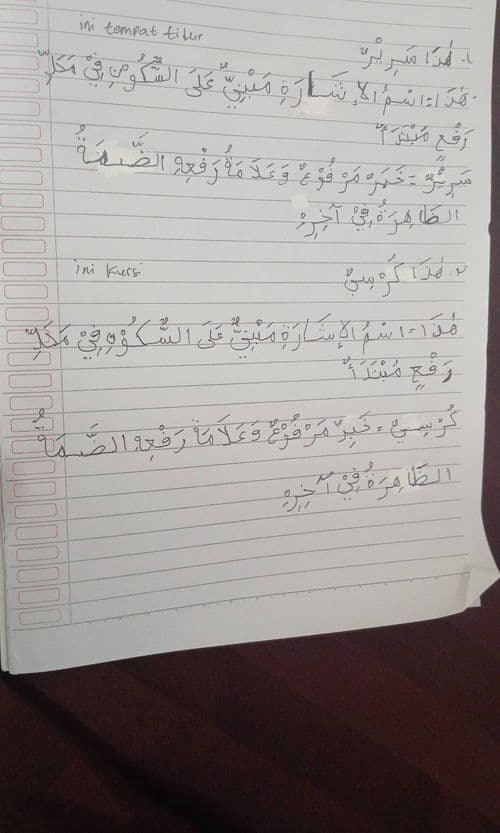 ini tempat tidur
١. هٰذَا سَرِيْرٌ
هٰذَا = اسْمُ الْإِشَارَةِ مَبْنِيٌّ عَلَى السُّكُوْنِ فِيْ مَحَلِّ
رَفْعٍ مُبْتَدَأٌ
سَرِيْرٌ = خَبَرٌ مَرْفُوْعٌ وَعَلَامَةُ رَفْعِهِ الضَّمَةُ
الظَّاهِرَةُ فِيْ آخِرِهِ
ini kursi
٢. هٰذَا كُرْسِيٌّ
هٰذَا = اسْمُ الْإِشَارَةِ مَبْنِيٌّ عَلَى السُّكُوْنِ فِيْ مَحَلِّ
رَفْعٍ مُبْتَدَأٌ
كُرْسِيٌّ = خَبَرٌ مَرْفُوْعٌ وَعَلَامَةُ رَفْعِهِ الضَّمَةُ
الظَّاهِرَةُ فِيْ آخِرِهِ